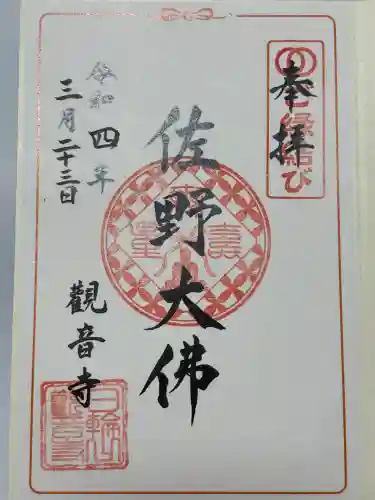 奉拝
ご縁結び
佐野大佛
令和四年
三月二十三日
觀音寺